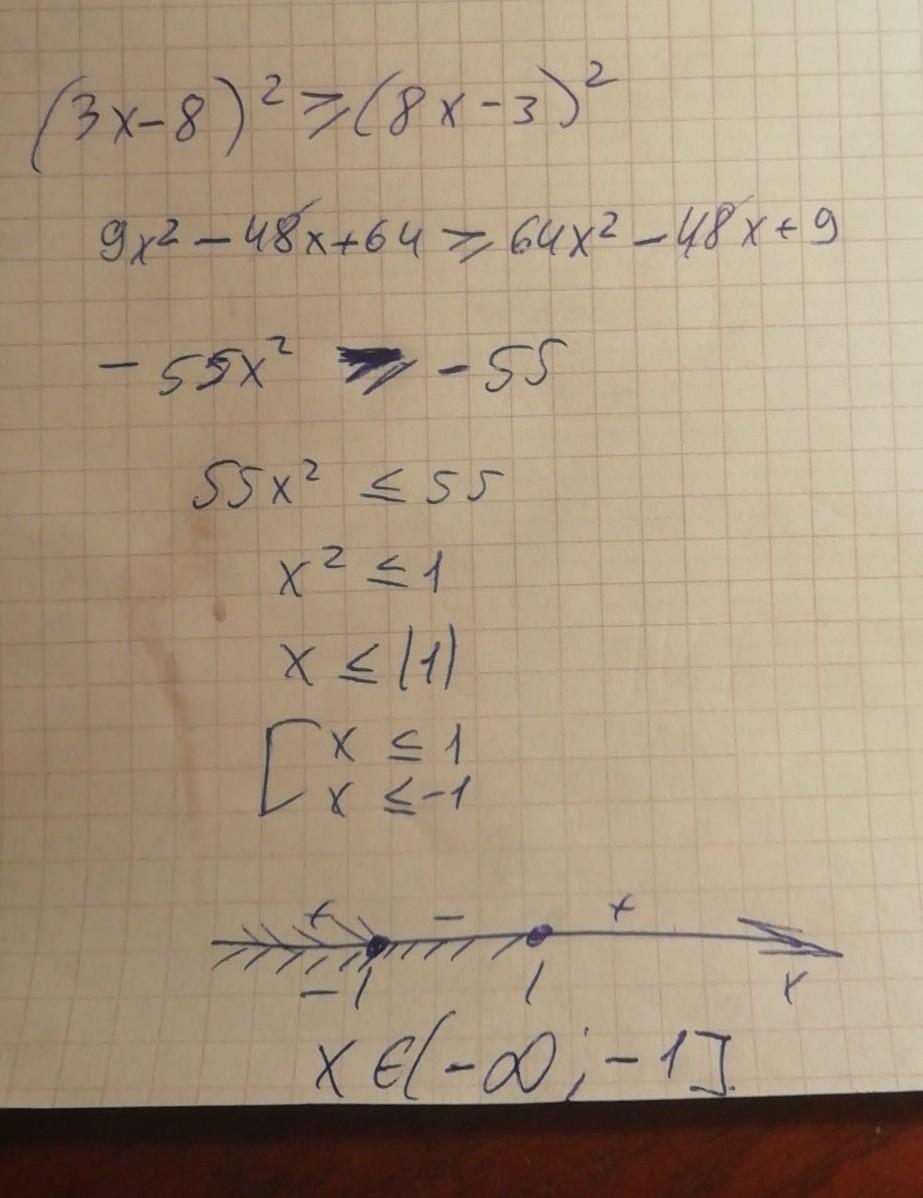 (3x-8)² ≥ (8x-3)²
9x² - 48x + 64 ≥ 64x² - 48x + 9
- 55x² ≥ - 55
55x² ≤ 55
x² ≤ 1
x ≤ |1|
[ x ≤ 1
x ≤ -1
+ - +
-1 1 x
x ∈ (-∞; -1]